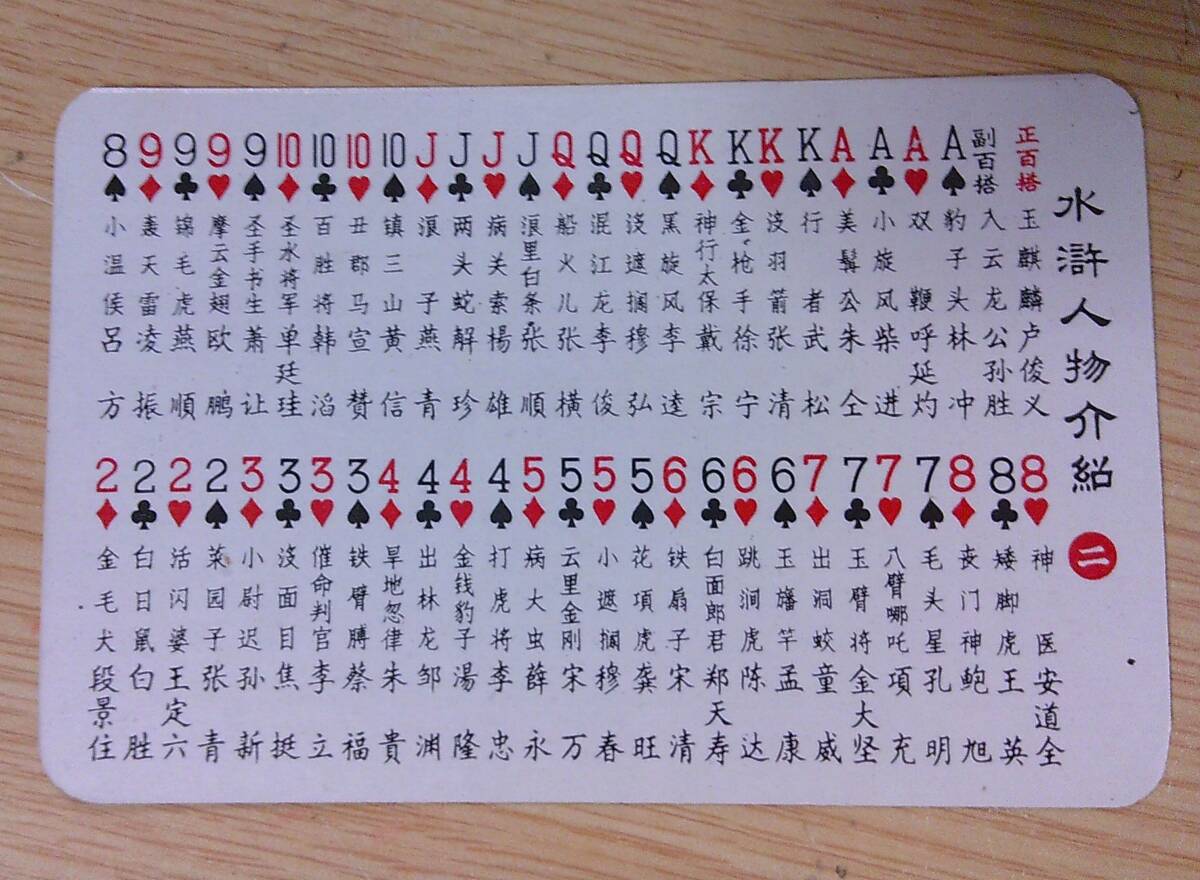 水滸人物介紹 二
正百搭 玉麒麟卢俊义
副百搭 入云龙公孙胜
A♠ 豹子头林冲
A♥ 双鞭呼延灼
A♣ 小旋风柴进
A♦ 美髯公朱仝
K♠ 行者武松
K♥ 没羽箭张清
K♣ 金枪手徐宁
K♦ 神行太保戴宗
Q♠ 黑旋风李逵
Q♥ 没遮搁穆弘
Q♣ 混江龙李俊
Q♦ 船火儿张横
J♠ 浪里白条张順
J♥ 病关索楊雄
J♣ 两头蛇解珍
J♦ 浪子燕青
10♠ 镇三山黄信
10♥ 丑郡马宣赞
10♣ 百胜将韩滔
10♦ 圣水将军单廷珪
9♠ 圣手书生萧让
9♥ 摩云金翅欧鹏
9♣ 锦毛虎燕順
9♦ 轰天雷凌振
8♠ 小温侯吕方
8♥ 神医安道全
8♣ 矮脚虎王英
8♦ 丧门神鲍旭
7♠ 毛头星孔明
7♥ 八臂哪吒項充
7♣ 玉臂将金大坚
7♦ 出洞蛟童威
6♠ 玉旛竿孟康
6♥ 跳涧虎陈达
6♣ 白面郎君郑天寿
6♦ 铁扇子宋清
5♠ 花項虎龚旺
5♥ 小遮搁穆春
5♣ 云里金刚宋万
5♦ 病大虫薛永
4♠ 打虎将李忠
4♥ 金钱豹子湯隆
4♣ 出林龙邹渊
4♦ 旱地忽律朱貴
3♠ 铁臂膊蔡福
3♥ 催命判官李立
3♣ 没面目焦挺
3♦ 小尉迟孙新
2♠ 菜园子张青
2♥ 活闪婆王定六
2♣ 白日鼠白胜
2♦ 金毛犬段景住